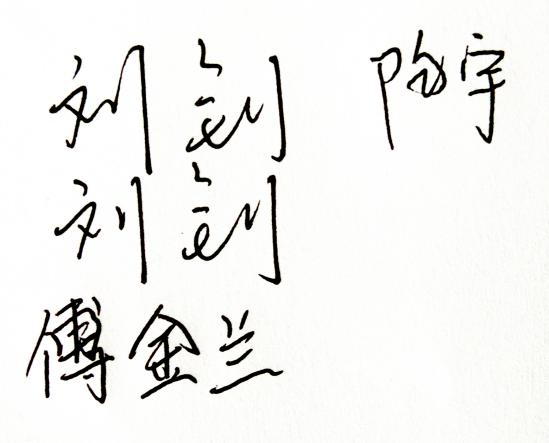 刘钊 陶宇
刘钊
傅金兰